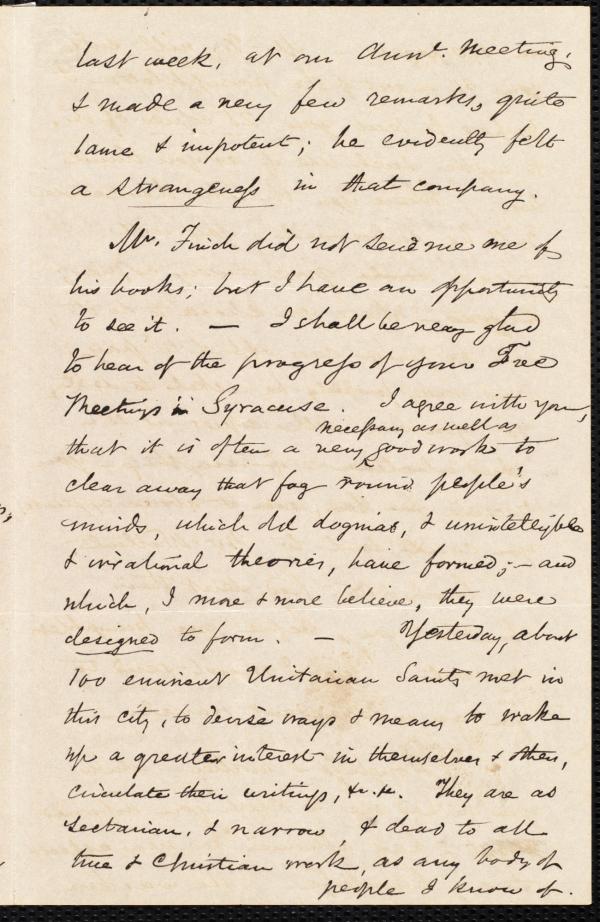 last week, at our Ann!. Meeting,
& made a very few remarks, quite
lame & impotent; he evidently felt
a strangeness in that company.
Mr. Finch did not send me one of
his books; but I have an opportunity
to see it. — I shall be very glad
to hear of the progress of your Free
Meetings in Syracuse. I agree with you,
necessary as well as
that it is often a very good work to
clear away that fog round people's
minds, which old dogmas, & unintelligible
& irrational theories, have formed; — and
which, I more & more believe, they were
designed to form. — Yesterday, about
100 eminent Unitarian Saints met in
this city, to devise ways & means to wake
up a greater interest in themselves & others,
circulate their writings, &c. &c. They are as
sectarian, & narrow, & dead to all
true & Christian work, as any body of
people I know of.